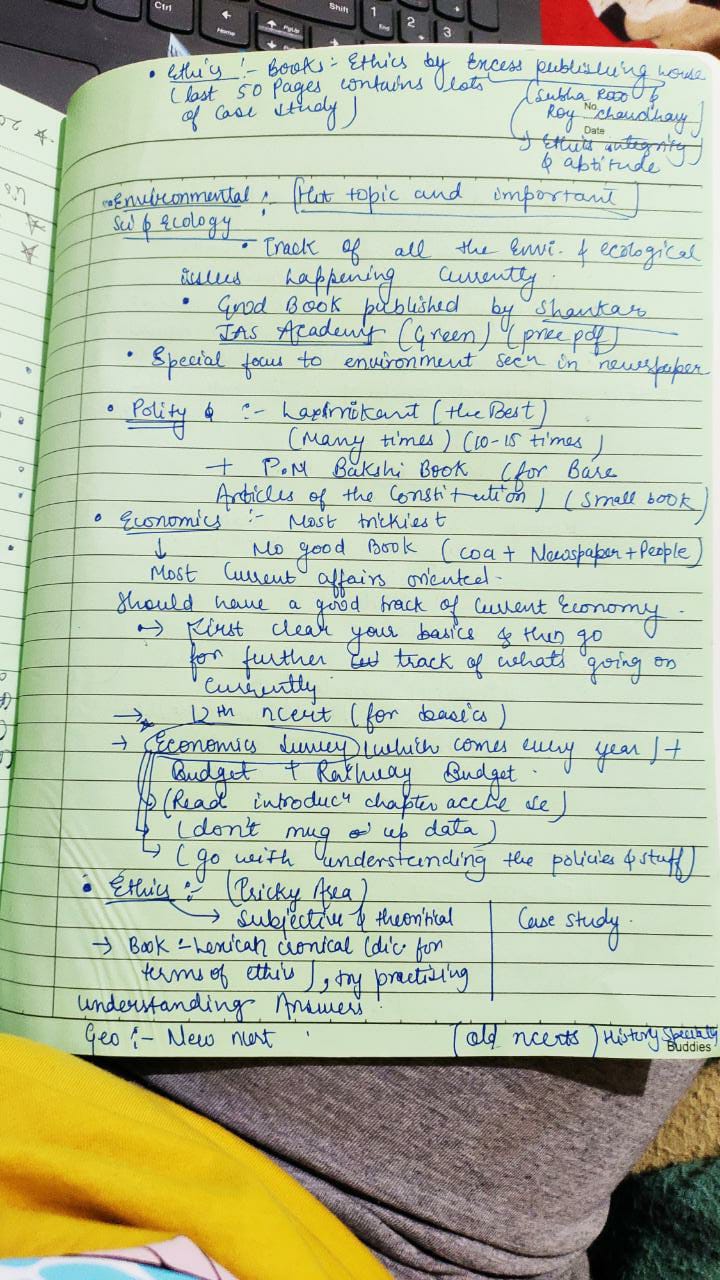 Ctrl
Shift
Home
PgUp
PgDn
1
End
2
3
• Ethics :- Books :- Ethics by Excess publishing house
(last 50 Pages contains lots
of Case study)
(Subha Rao &
Roy chaudhary)
No.
Date
→ Ethics integrity
& aptitude
• Environmental :- [Hot topic and important]
Sci & Ecology :
• Track of all the Envi. & ecological
issues happening currently.
• Good Book published by Shankar
IAS Academy (Green) (free pdf)
• Special focus to environment seen in newspaper
• Polity & :- Laxmikant (the Best)
(Many times) (10-15 times)
+ P.M Bakshi Book (for Bare
Articles of the Constitution) (Small book)
• Economics :- Most trickiest
↓ No good Book (coa + Newspaper + People)
Most Current affairs oriented.
Should have a good track of current Economy.
→ First clear your basics & then go
for further track of whats going on
currently
→ 12th ncert (for basics)
→ (Economics Survey) (which comes every year) +
Budget + Railway Budget.
→ (Read introducn chapter
(don't mug up data)
→ (go with understanding the policies & stuff)
• Ethics :- (Pricky Area)
→ Subjective & theoritical | Case study.
→ Book :- (dic. for
terms of ethics), try practising
understanding Answers.
Geo :- New ncert (old ncerts) History Specialy
Buddies